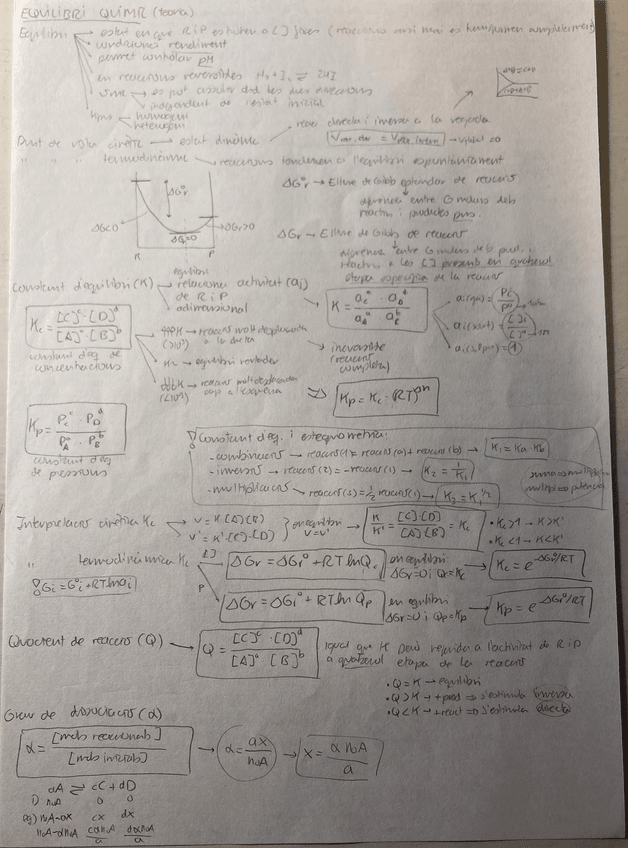 EQUILIBRI QUÍMIC (teoria)
Equilibri → estat en que R i P estan en a [ ] fixes (reaccions casi mai es completament)
condicions rendiment
permet controlar pH
en reaccions reversibles H₂ + I₂ ⇌ 2HI
es pot assolir des de les dues direccions
independent de l'estat inicial
tipus → homogeni
heterogeni
Punt de vista cinètic → estat dinàmic → reac directa i inversa a la vegada
= → Vglobal = 0
" " termodinàmic → reaccions tendeixen a l'equilibri espontàniament
ΔG°r
ΔG<0
ΔGr>0
ΔGr=0
R P
equilibri
ΔG°r → E lliure de Gibbs estàndar de reacció
diferència entre G molars dels
reactius i productes purs.
ΔGr → E lliure de Gibbs de reacció
diferència entre G molars dels prod. i
reactius a les [ ] presents en qualsevol
etapa específica de la reacció
Constant d'equilibri (K) → relaciona activitat (ai)
de R i P
adimensional
K = aC^c · aD^d / aA^a · aB^b
ai(gas) = Pi / P°
ai(sòl, líq) = 1
Kc = [C]^c · [D]^d / [A]^a · [B]^b
constant d'eq. de
concentracions
K → reacció molt desplaçada
a la dreta
irreversible
(reacció
completa)
K → reacció molt desplaçada
cap a l'esquerra
⇒ Kp = Kc · (RT)^Δn
Kp = PC^c · PD^d / PA^a · PB^b
constant d'eq
de pressions
Constant d'eq. i estequiometria:
- combinació → reacció(1) = reacció(a) + reacció(b) → K₁ = Ka · Kb
- inversió → reacció(2) = -reacció(1) → K₂ = 1/K₁
- multiplicació → reacció(3) = ½ reacció(1) → K₃ = K₁^1/2
Interpretació cinètica Kc → v = K [A][B]
v' = K' [C]·[D]
en equilibri
v = v'
→ K/K' = [C][D] / [A][B] = Kc
• Kc>1 → K>K'
• Kc<1 → K<K'
" termodinàmica Kc
[ ] ΔGr = ΔGr° + RT ln Qc en equilibri
ΔGr=0 i Qc=Kc → Kc = e^-ΔG°/RT
Gi = G°i + RT ln ai
P ΔGr = ΔGr° + RT ln Qp en equilibri
ΔGr=0 i Qp=Kp → Kp = e^-ΔG°/RT
Quocient de reacció (Q) → Q = [C]^c · [D]^d / [A]^a · [B]^b
igual que K però referida a l'activitat de R i P
a qualsevol etapa de la reacció
• Q = K → equilibri
• Q > K → + prod ⇒ s'estimula inversa
• Q < K → + react ⇒ s'estimula directa
Grau de dissociació (α)
α = [mols reaccionats] / [mols inicials] → α = ax / n₀A → x = α n₀A / a
aA ⇌ cC + dD
i) n₀A 0 0
eq) n₀A-ax cx dx
n₀A-αn₀A cαn₀A/a dαn₀A/a